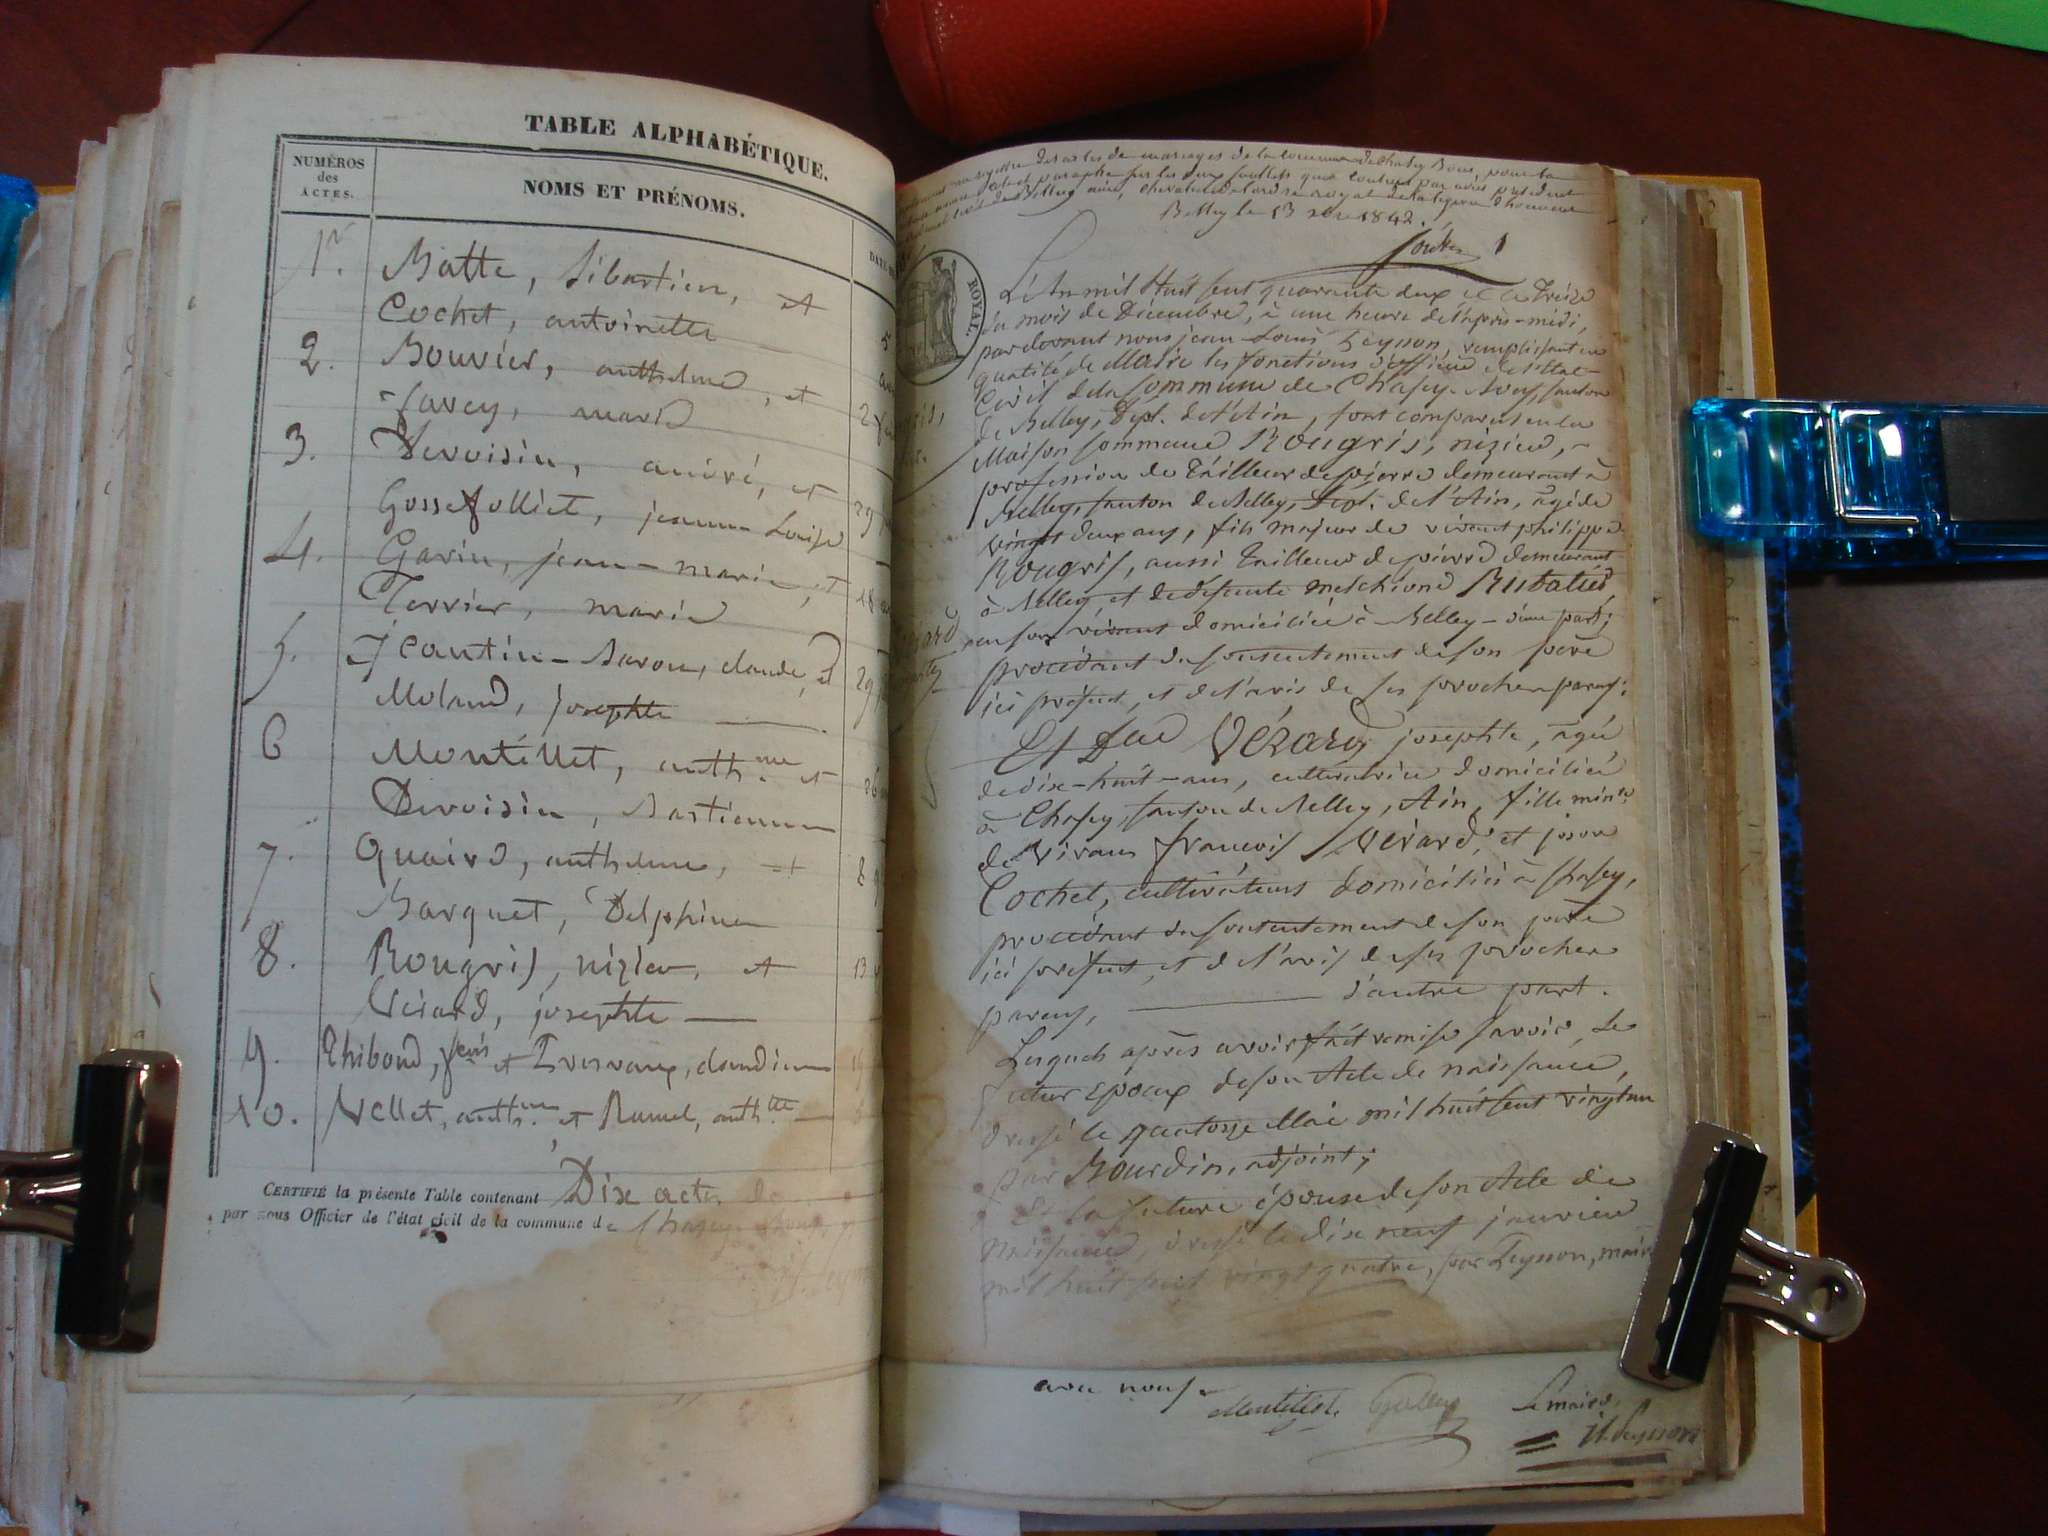 TABLE ALPHABÉTIQUE.
NUMÉROS
des
ACTES.
NOMS ET PRÉNOMS.
1er. Batte, Sibastien, et
Cochet, antoinette
2. Bouvier, anthelme, et
Savey, marie
3. Devoisin, andré, et 29
Gosse folliet, jeanne-Louise
4. Garin, jean-marie, et 18
Terrier, marie
5. Jcantin-Baron, claude, et 29
Molund, josephte
6 Montillet, anth.me et 26
Devoisin, Bastienne
7. Quaird, anthelme, et 8
Barquet, Delphine
8. Rougris, nizier, et 13
Vérard, josephte
9. Thiboud, fcois et claudine
10. Vellet, anth.me et Rumel, anth.tte
CERTIFIÉ la présente Table contenant Dix actes
par nous Officier de l'état civil de la commune de Chazey-Bons
registre des actes de mariages de la commune de Chazey Bons, pour
chevalier de l'ordre royal de la légion d'honneur
Belley le 13 1842.
ROYAL.
L'An mil Huit cent quarante deux et le Treize
du mois de Décembre, à une heure de l'après-midi,
pardevant nous jean Louis Peysson, remplissant en
qualité de Maire les fonctions d'officier de l'état
Civil de la Commune de Chazey-Bons, canton
de Belley, Dept. de l'Ain, sont comparus en la
Maison commune Rougris, nizier,
profession de Tailleur de pierre demeurant à
Belley, canton de Belley, Dept. de l'Ain, âgé de
vingt deux ans, fils majeur de vivant philippe
Rougris, aussi Tailleur de pierre demeurant
à Belley, et de défunte melchione Rubatier,
en son vivant domiciliée à Belley - d'une part;
procédant du consentement de son père
ici présent, et de l'avis de ses proches parens;
Et Vérard, josephte, agée
de dix-huit-ans, cultivatrice domiciliée
à Chazey, canton de Belley, Ain, fille mine
de vivans françois Vérard, et
Cochet, cultivateurs domiciliés à Chazey,
procédant du consentement de son père
ici présent, et de l'avis de ses proches
parens, d'autre part.
Lesquels après avoir fait remise savoir, Le
futur époux de son Acte de naissance,
dressé le quatorze Mai mil huit cent vingt un
par Bourdin, adjoint;
Et la future épouse de son Acte de
naissance, dressé le dix neuf janvier
mil huit cent vingt quatre, par Peysson, maire
avec nous.
Montillet. Le maire,
J.L. Peysson